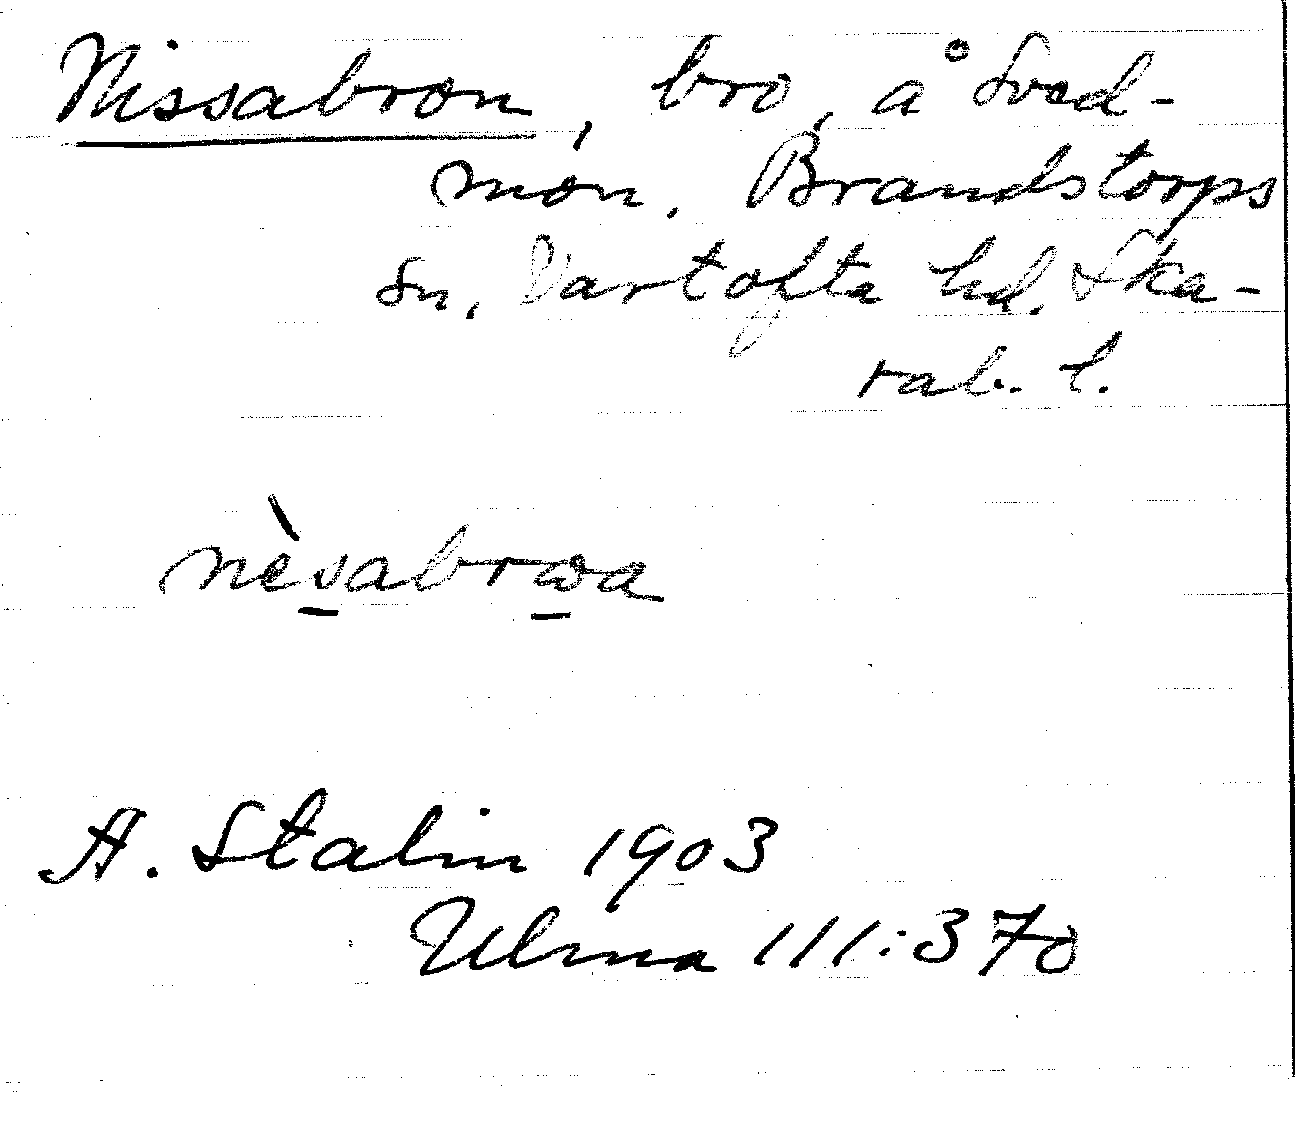 Nissabron, bro, å Sved-
mon. Brandstorps
sn, Vartofta hd. Ska-
rab. l.
nèsabrωa
A. Stalin 1903
Ulma 111:370